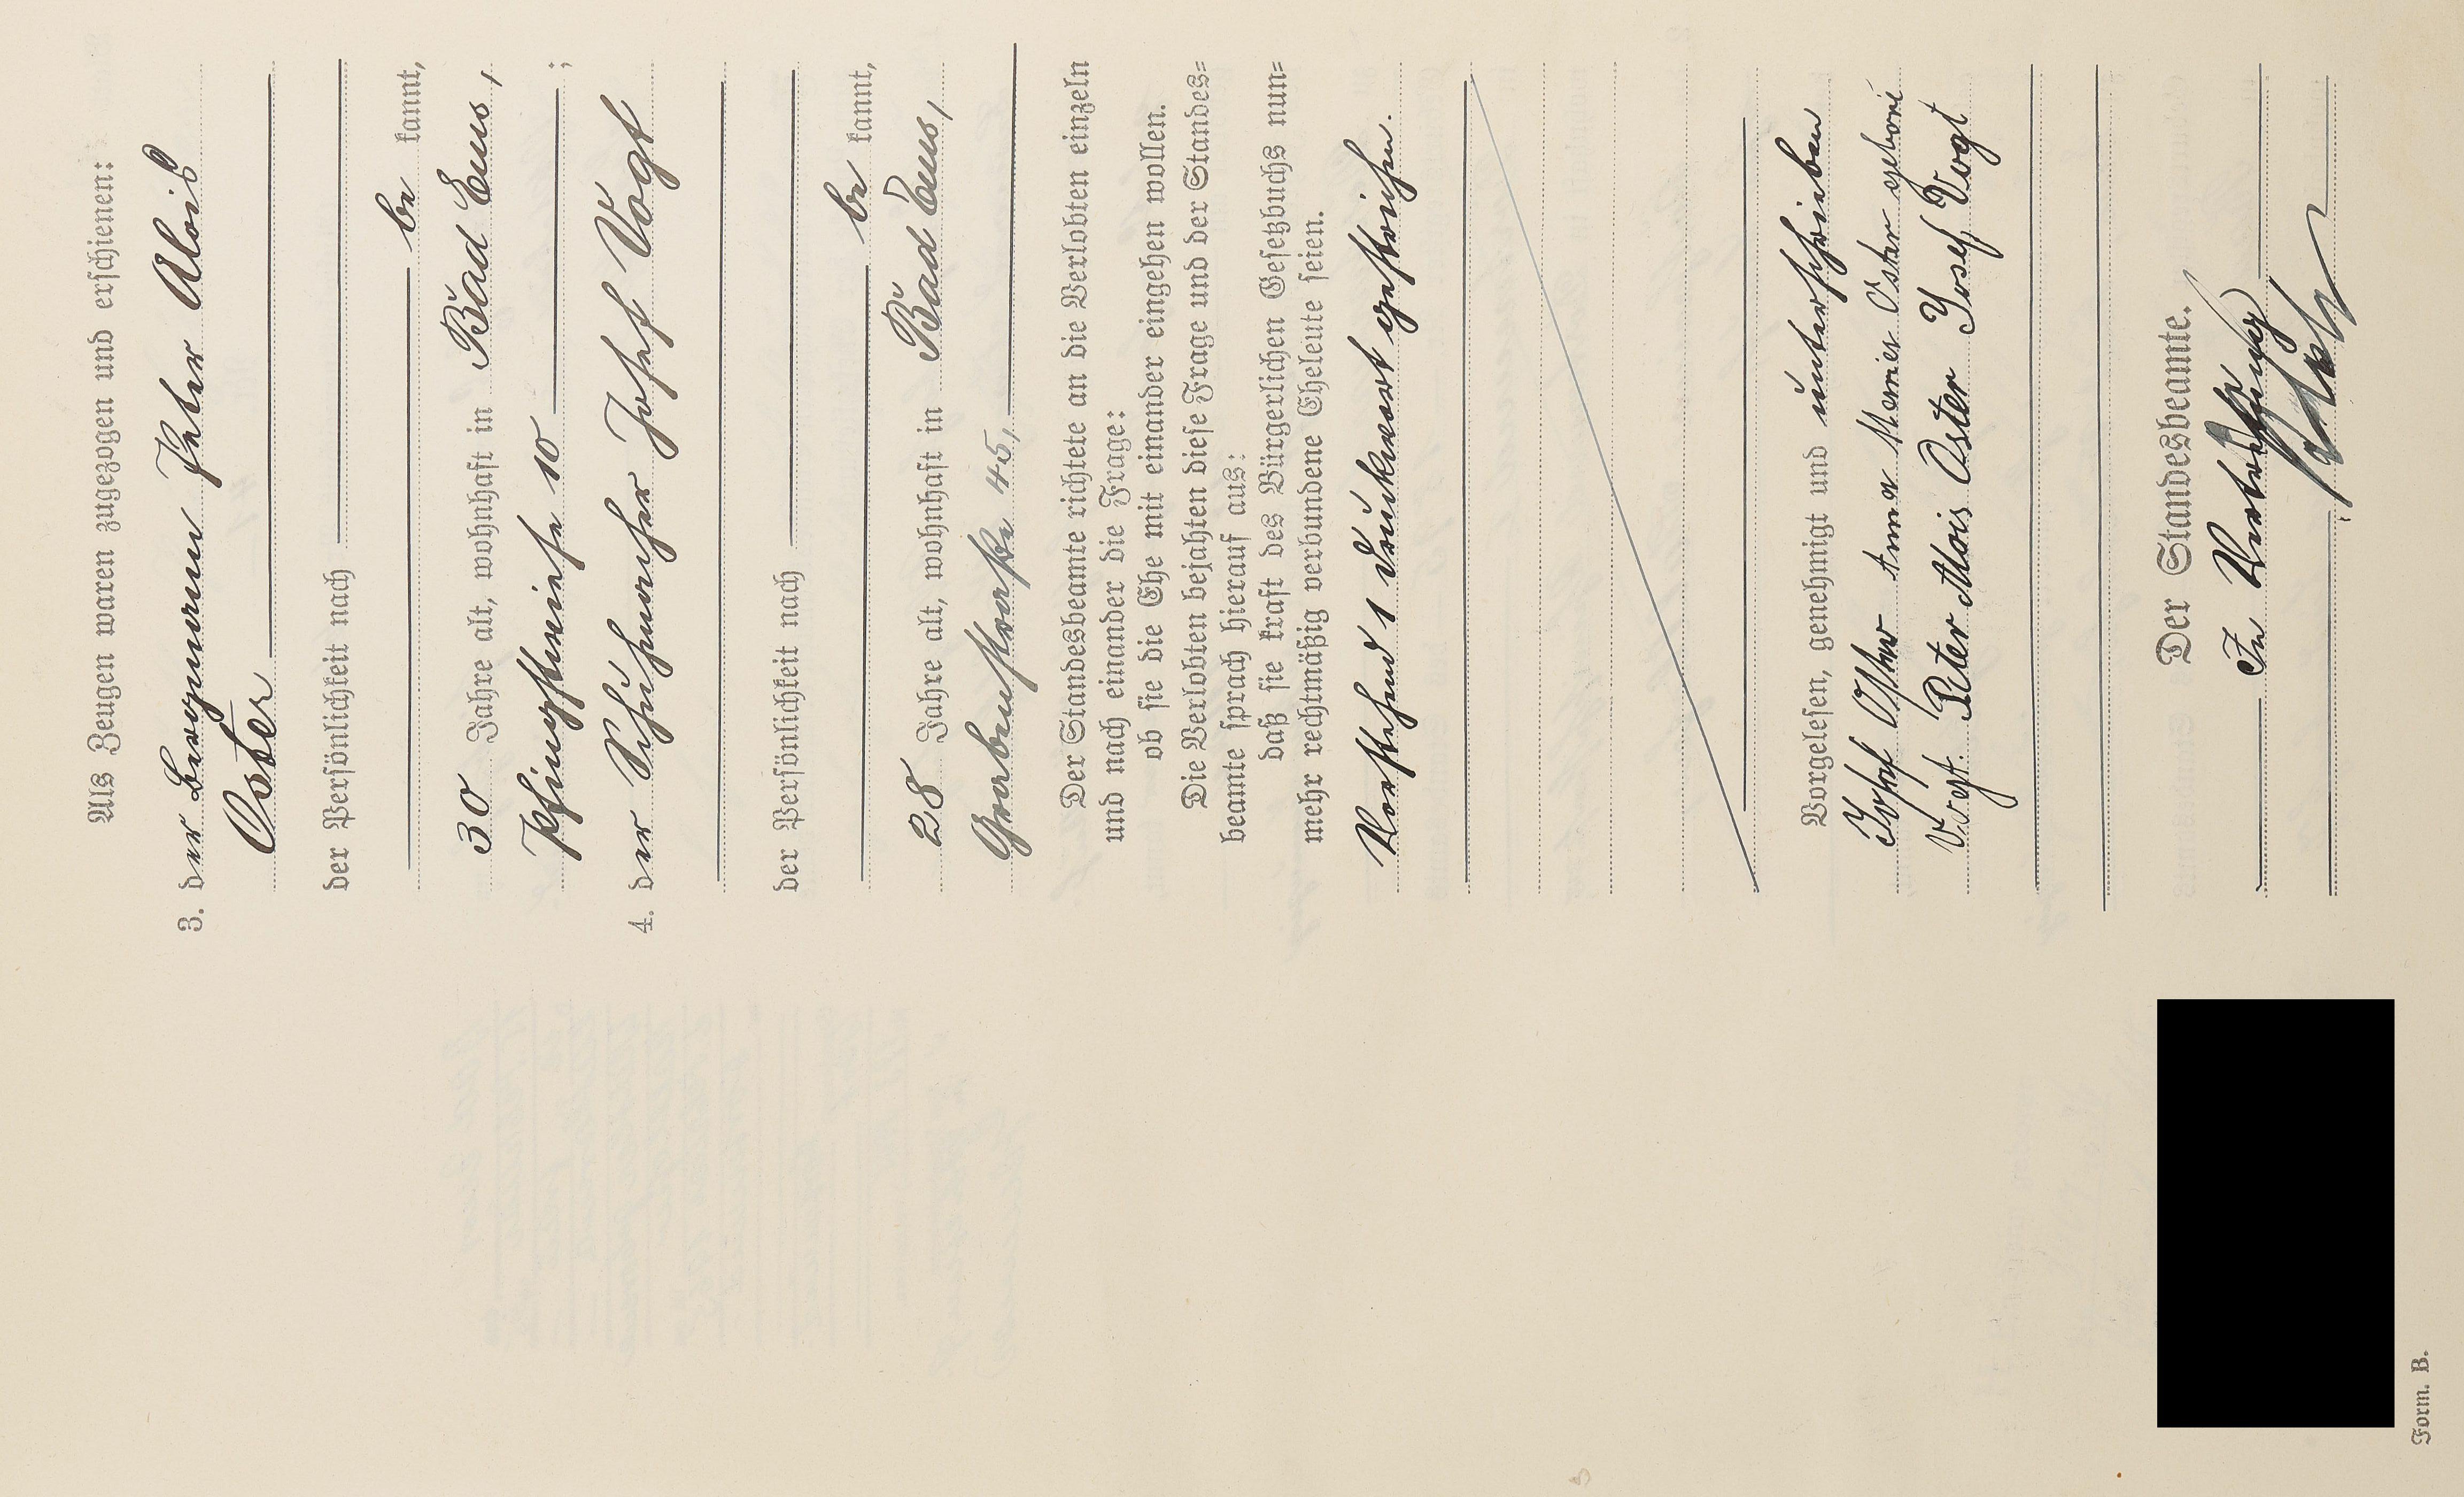 Als Zeugen waren zugezogen und erschienen:
3. der Bergmann Peter Alois
Oster
der Persönlichkeit nach
be kannt,
30 Jahre alt, wohnhaft in Bad Ems,
Pfingstwiese 10 ;
4. der Schuhmacher Josef Vogt
der Persönlichkeit nach
be kannt,
28 Jahre alt, wohnhaft in Bad Ems,
Grabenstraße 45,
Der Standesbeamte richtete an die Verlobten einzeln
und nach einander die Frage:
ob sie die Ehe mit einander eingehen wollen.
Die Verlobten bejahten diese Frage und der Standes=
beamte sprach hierauf aus:
daß sie kraft des Bürgerlichen Gesetzbuchs nun=
mehr rechtmäßig verbundene Eheleute seien.
Vorstehend 1 Druckwort gestrichen.
Vorgelesen, genehmigt und unterschrieben
Josef Oster Anna Maria Oster geborene
Vogt. Peter Alois Oster Josef Vogt
Der Standesbeamte.
In Vertretung
Form. B.